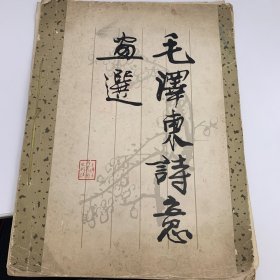 毛澤東詩意
画選